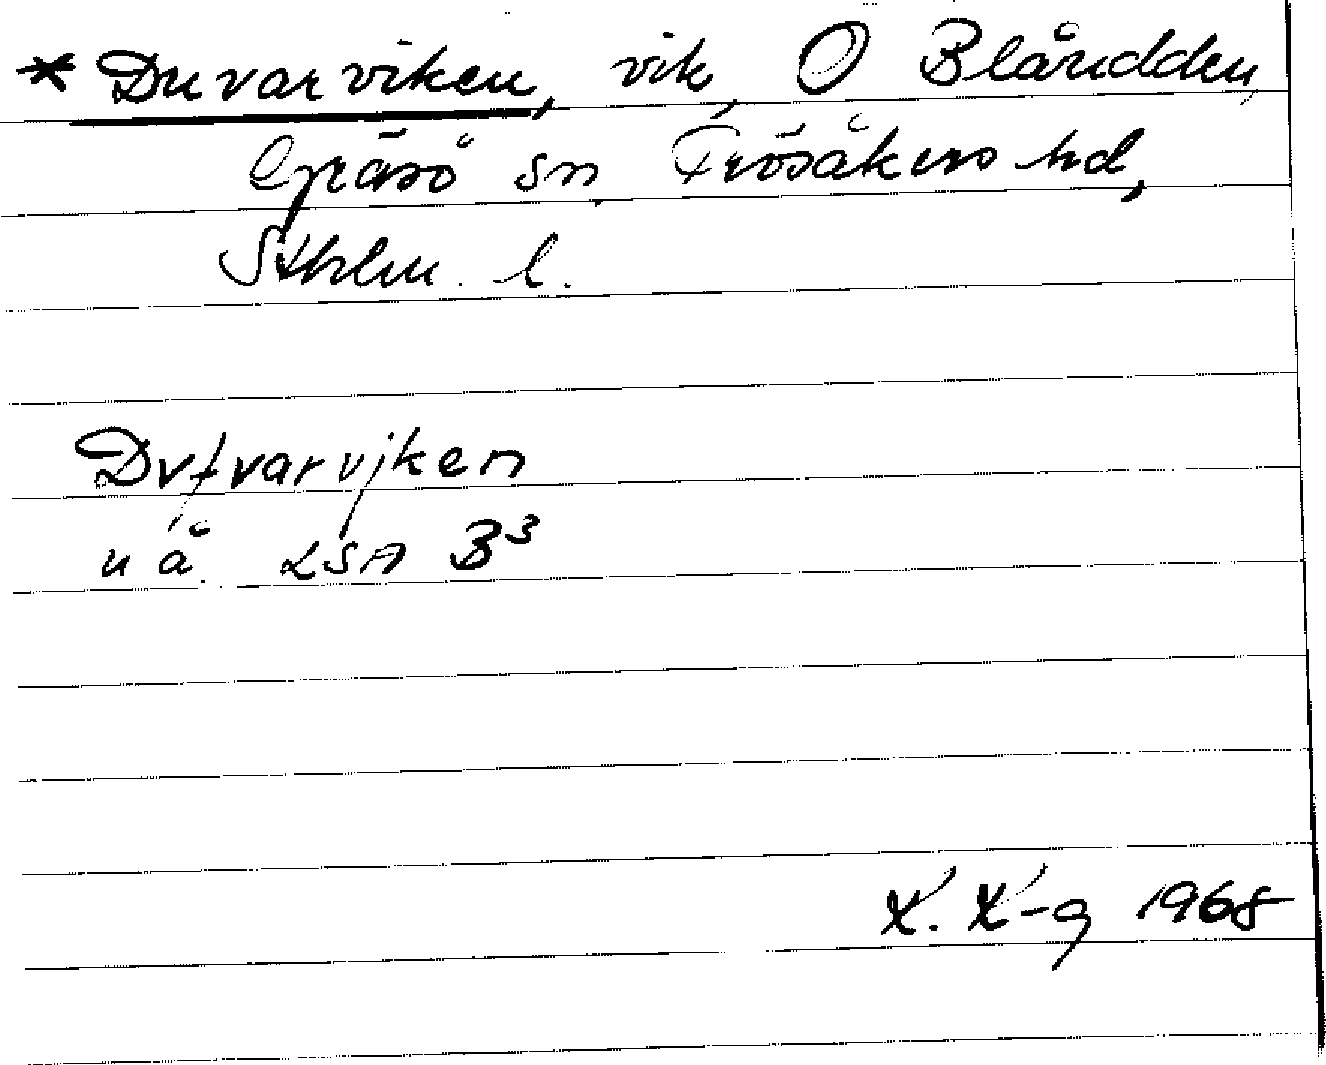 * Duvarviken, vik, O Blårudden,
Gräsö sn, Frösåkers hd,
Sthlm. l.
Dvfvarvjken
u å. LSA B³
K. K-g 1968